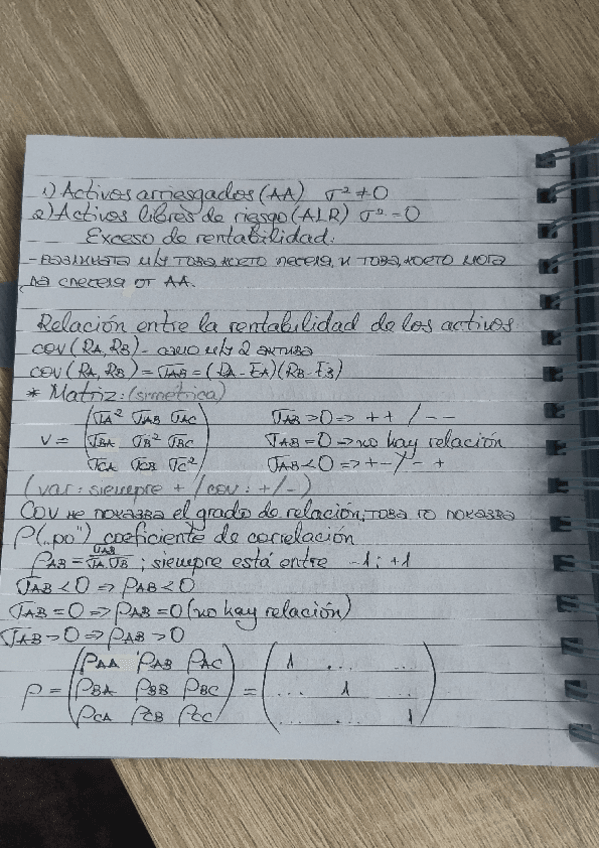 1) Activos arriesgados (AA) σ² ≠ 0
2) Activos libres de riesgo (ALR) σ² = 0
Exceso de rentabilidad:
- разликата м/у това, което песеля, и това, което мога
да спеселя от AA.
Relación entre la rentabilidad de los activos
cov (RA, RB) - само м/у 2 актива
cov (RA, RB) = σAB = (RA - EA)(RB - EB)
* Matriz: (simétrica)
V = (σA² σAB σAC
σBA σB² σBC
σCA σCB σC²)
σAB > 0 => + + / - -
σAB = 0 => no hay relación
σAB < 0 => + - / - +
(var: siempre + / cov: + / -)
COV не показва el grado de relación, това го показва
ρ („ро") coeficiente de correlación
ρAB = σAB / σA σB ; siempre está entre -1 ; +1
σAB < 0 => ρAB < 0
σAB = 0 => ρAB = 0 (no hay relación)
σAB > 0 => ρAB > 0
ρ = (ρAA ρAB ρAC
ρBA ρBB ρBC
ρCA ρCB ρCC) = (1 ... ...
... 1 ...
... ... 1)